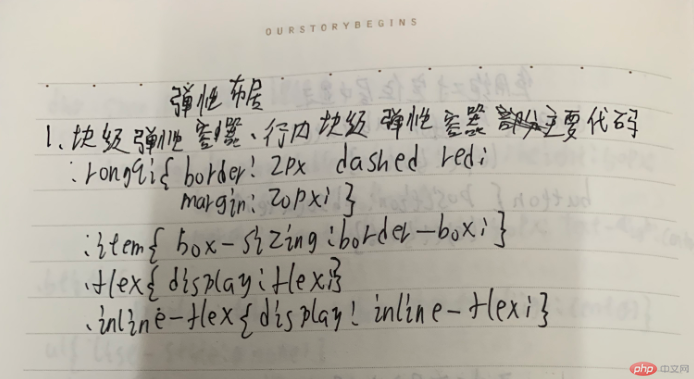 OURSTORYBEGINS
弹性布局
1、块级弹性容器、行内块级弹性容器主要代码
.rongqi{ border: 2px dashed red;
margin: 20px; }
.item{ box-sizing: border-box; }
.flex{ display: flex; }
.inline-flex{ display: inline-flex; }
php 中文网